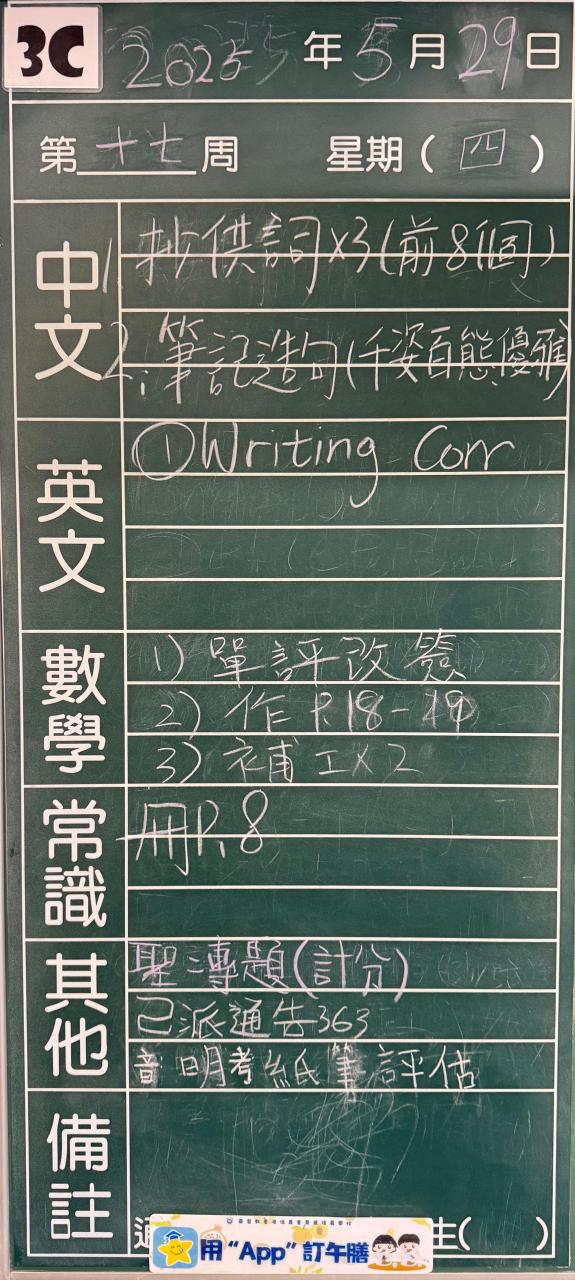 3C 2025 年 5 月 29 日
第 十七 周 星期 ( 四 )
中文
1. 抄供詞x3(前8個)
2. 筆記造句(千姿百態、優雅)
英文
①Writing Corr
數學
1) 單評改簽
2) 作 P.18-19
3) 補工x2
常識
冊P.8
其他
聖:專題(計分)
已派通告363
音:明考紙筆評估
備註
用“App”訂午膳
生( )